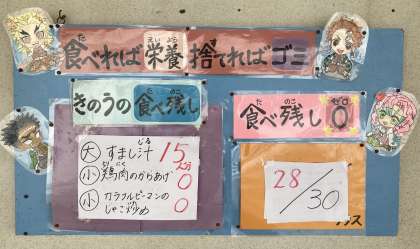 食べれば栄養 捨てればゴミ
きのうの食べ残し
大 すまし汁 15人分
小 鶏肉のからあげ 0
小 カラフルピーマンの
じゃこ炒め 0
食べ残し0
28/30
クラス